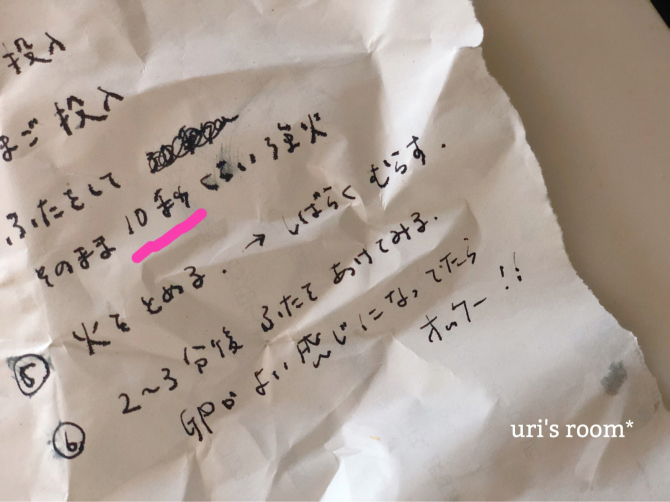 投入
まご投入
ふたをして
そのまま 10秒 くらい強火
火をとめる. → しばらく むらす.
⑤ 2〜3分後 ふたを あけてみる.
⑥ GPが よい感じになってたら
オッケー!!
uri's room*